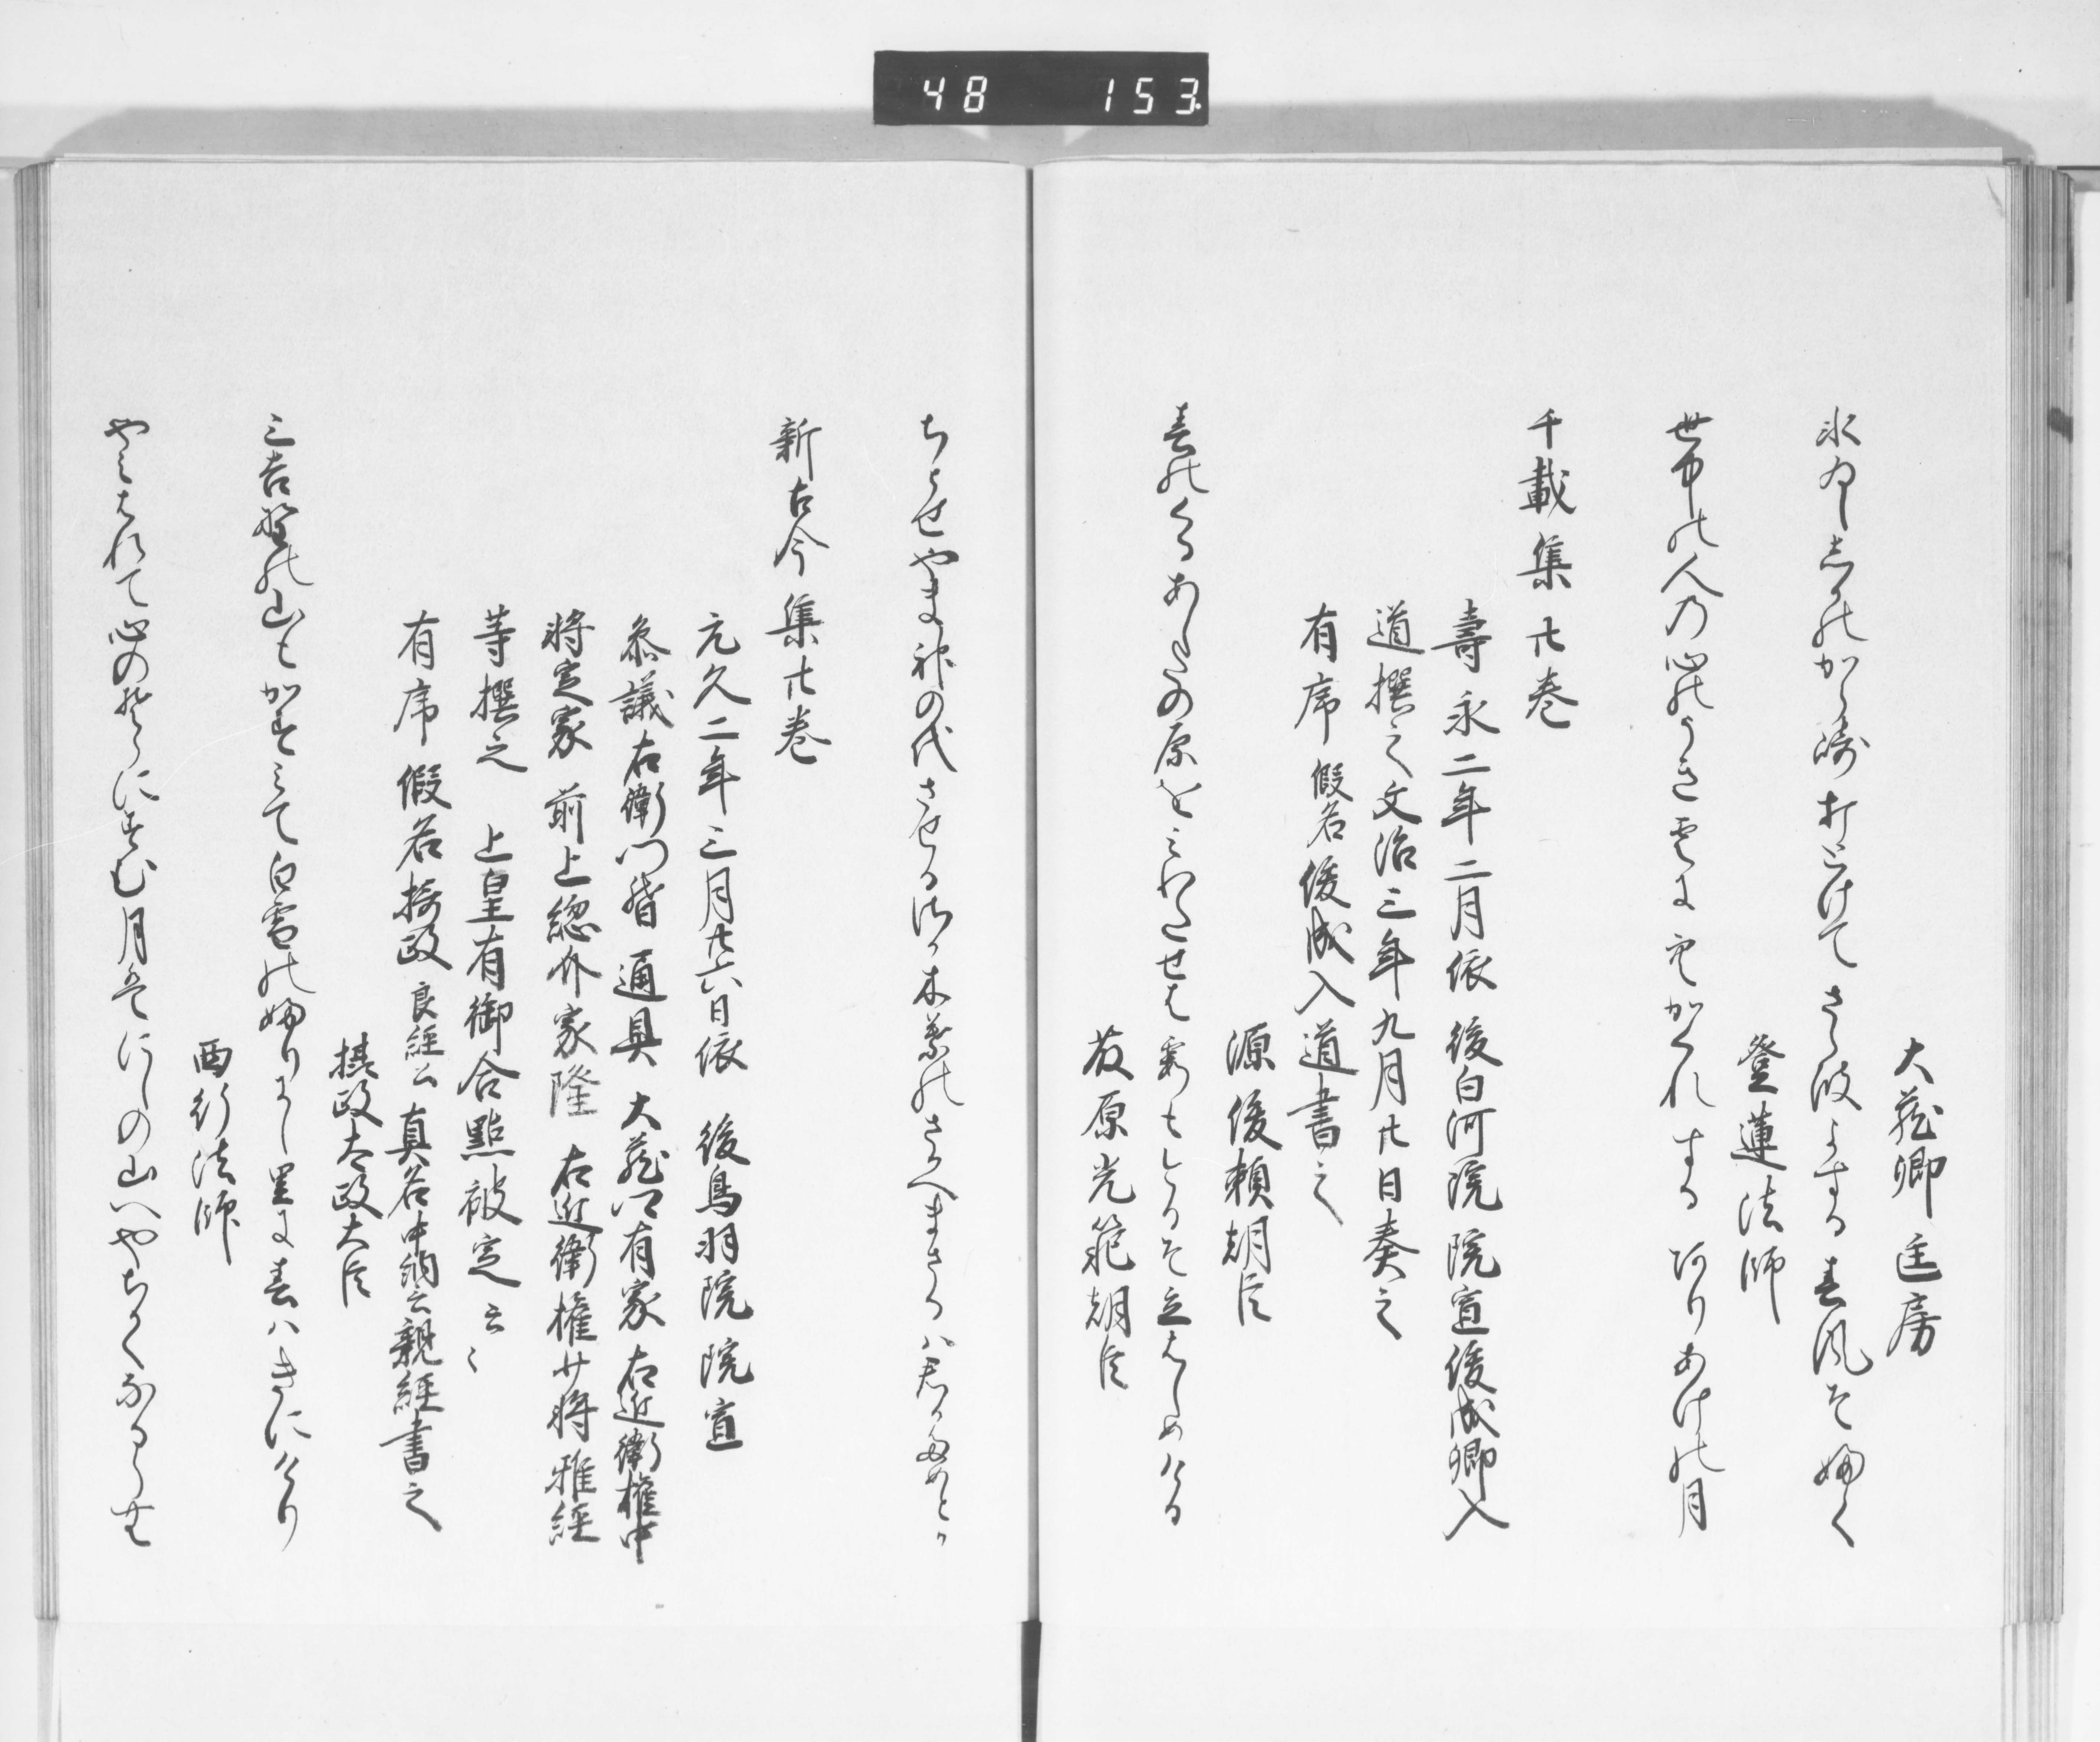 48 153
大蔵卿匡房
氷ゐし志賀のから崎打とけてさゝ波よする春風そ吹く
登蓮法師
世中の人の心のうき雲に空かくれするありあけの月
千載集廿巻
壽永二年二月依 後白河院院宣俊成卿入
道撰之文治三年九月廿日奏之
有序 假名俊成入道書之
源俊頼朝臣
春のくるあしたの原をみわたせは霞もけふそ立はしめける
藤原光範朝臣
ちとせやま神の代させるさか木葉のさかへまさるハ君かためとか
新古今集廿巻
元久二年三月廿六日依 後鳥羽院院宣
参議右衛門督通具 大蔵卿有家 右近衛権中
将定家 前上総介家隆 右近衛権少将雅経
等撰之 上皇有御合點被定云々
有序 假名摂政良経公真名中納言親経書之
摂政太政大臣
三吉野の山もかすみて白雪のふりにし里に春ハきにけり
西行法師
やみはれて心のそらにすむ月はにしの山へやちかくなるらむ